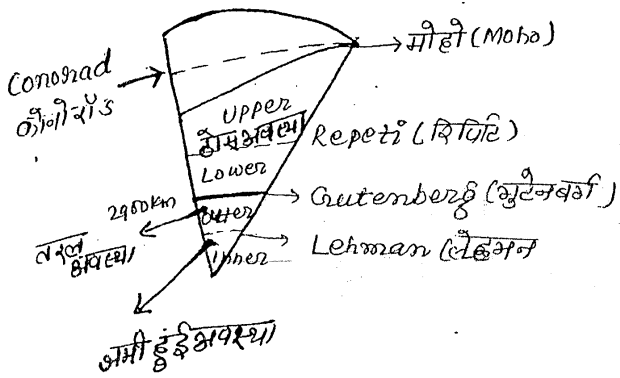 मोहो (Moho)
Conorad
कौनोरॉड
Upper
ठोस अवस्था
Repeti (रिपिटि)
Lower
2900km
Gutenberg (गुटेनबर्ग)
Outer
तरल
अवस्था
Lehman (लेहमन
Inner
जमी हुई अवस्था